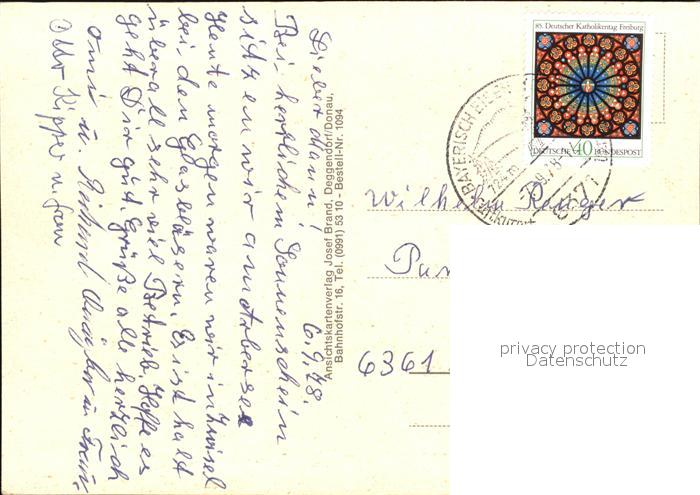 6.9.78.
Lieber Mann!
Bei herrlichem Sonnenschein
sitzen wir am Arbersee
Heute morgen waren wir in Zwiesel
bei den Glasbläsern. Es ist halt
überall sehr viel Betrieb. Hoffe es
geht Dir gut. Grüße alle herzlich
Omi u.
u. Frau.
u. Frau
Ansichtskartenverlag Josef Brand, Deggendorf/Donau,
Bahnhofstr. 16, Tel. (0991) 53 10 - Bestell-Nr. 1094
85. Deutscher Katholikentag Freiburg
DEUTSCHE 40 BUNDESPOST
BAYERISCH EISEN
724 m
8371
Wilhelm
6361
privacy protection
Datenschutz